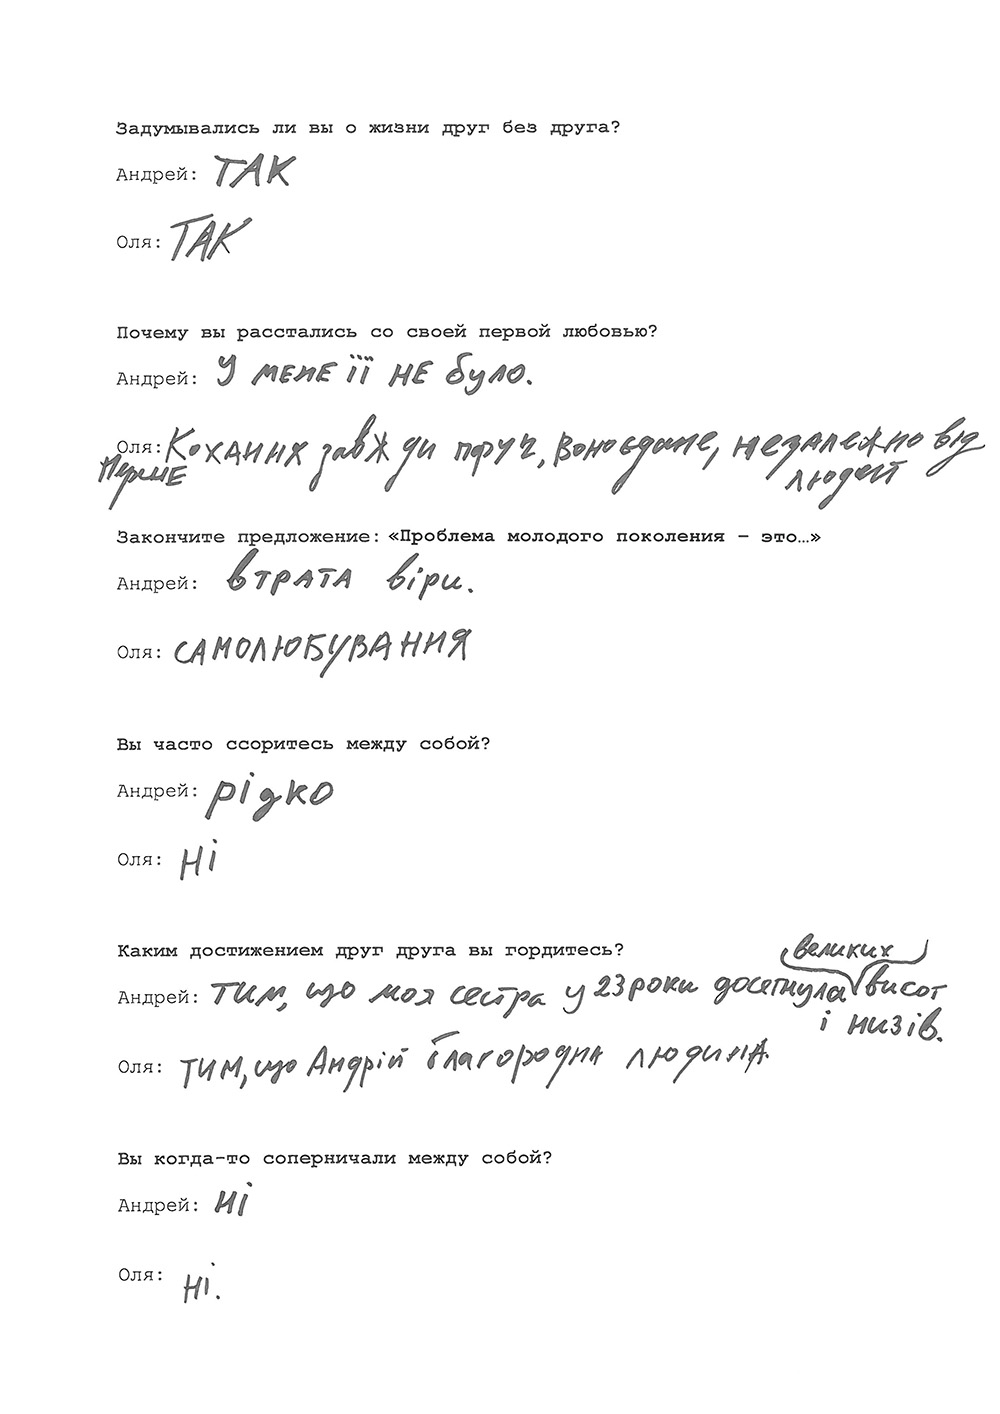 Задумывались ли вы о жизни друг без друга?
Андрей: ТАК
Оля: ТАК
Почему вы расстались со своей первой любовью?
Андрей: У мене її не було.
Оля: Перше Кохання завжди поруч, воно єдине, незалежно від
людей
Закончите предложение: «Проблема молодого поколения – это…»
Андрей: втрата віри.
Оля: САМОЛЮБУВАННЯ
Вы часто ссоритесь между собой?
Андрей: рідко
Оля: Ні
Каким достижением друг друга вы гордитесь?
Андрей: тим, що моя сестра у 23 роки досягнула великих висот
і низів.
Оля: тим, що Андрій благородна людина.
Вы когда-то соперничали между собой?
Андрей: ні
Оля: ні.